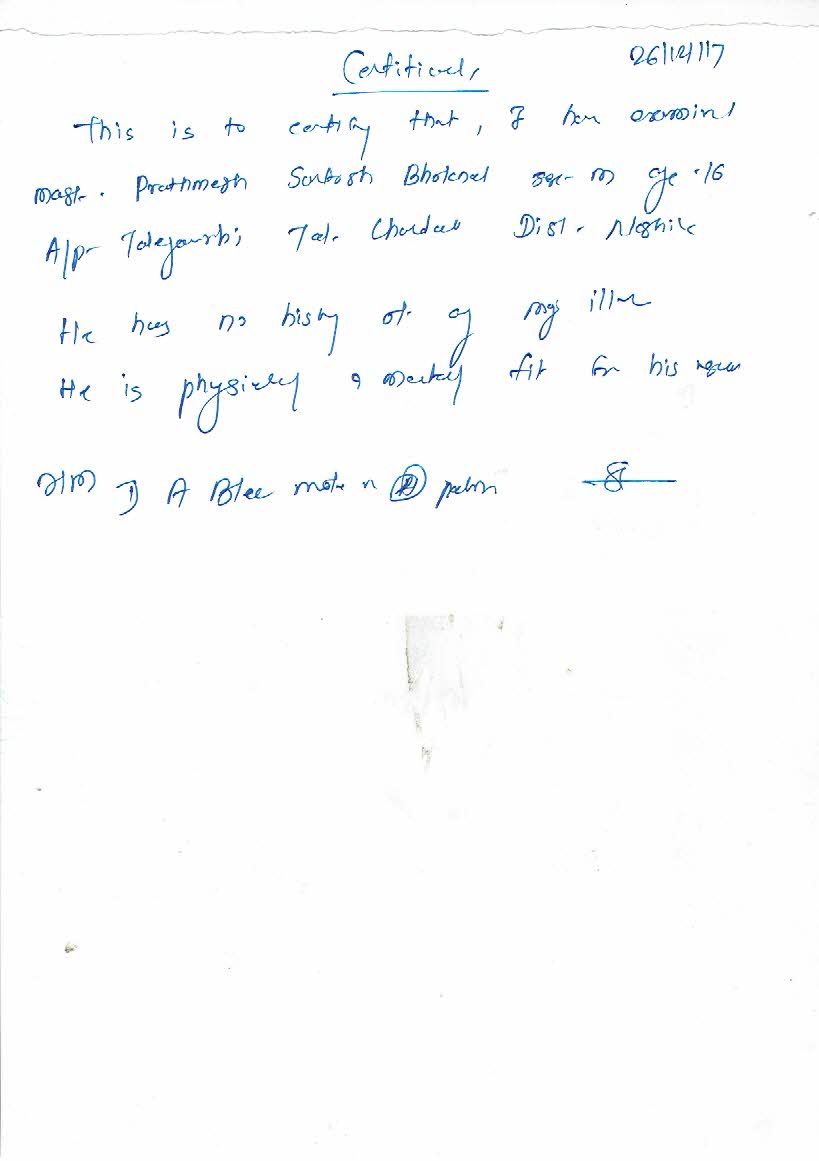 Certificate
26/12/17
This is to certify that, I have examined
Mast. Prathmesh Santosh sex- m age - 16
A/p- Tal. Dist. Nashik
He has no history of any illness
He is physically & mentally fit for his
1) A Black mole on (R) palm